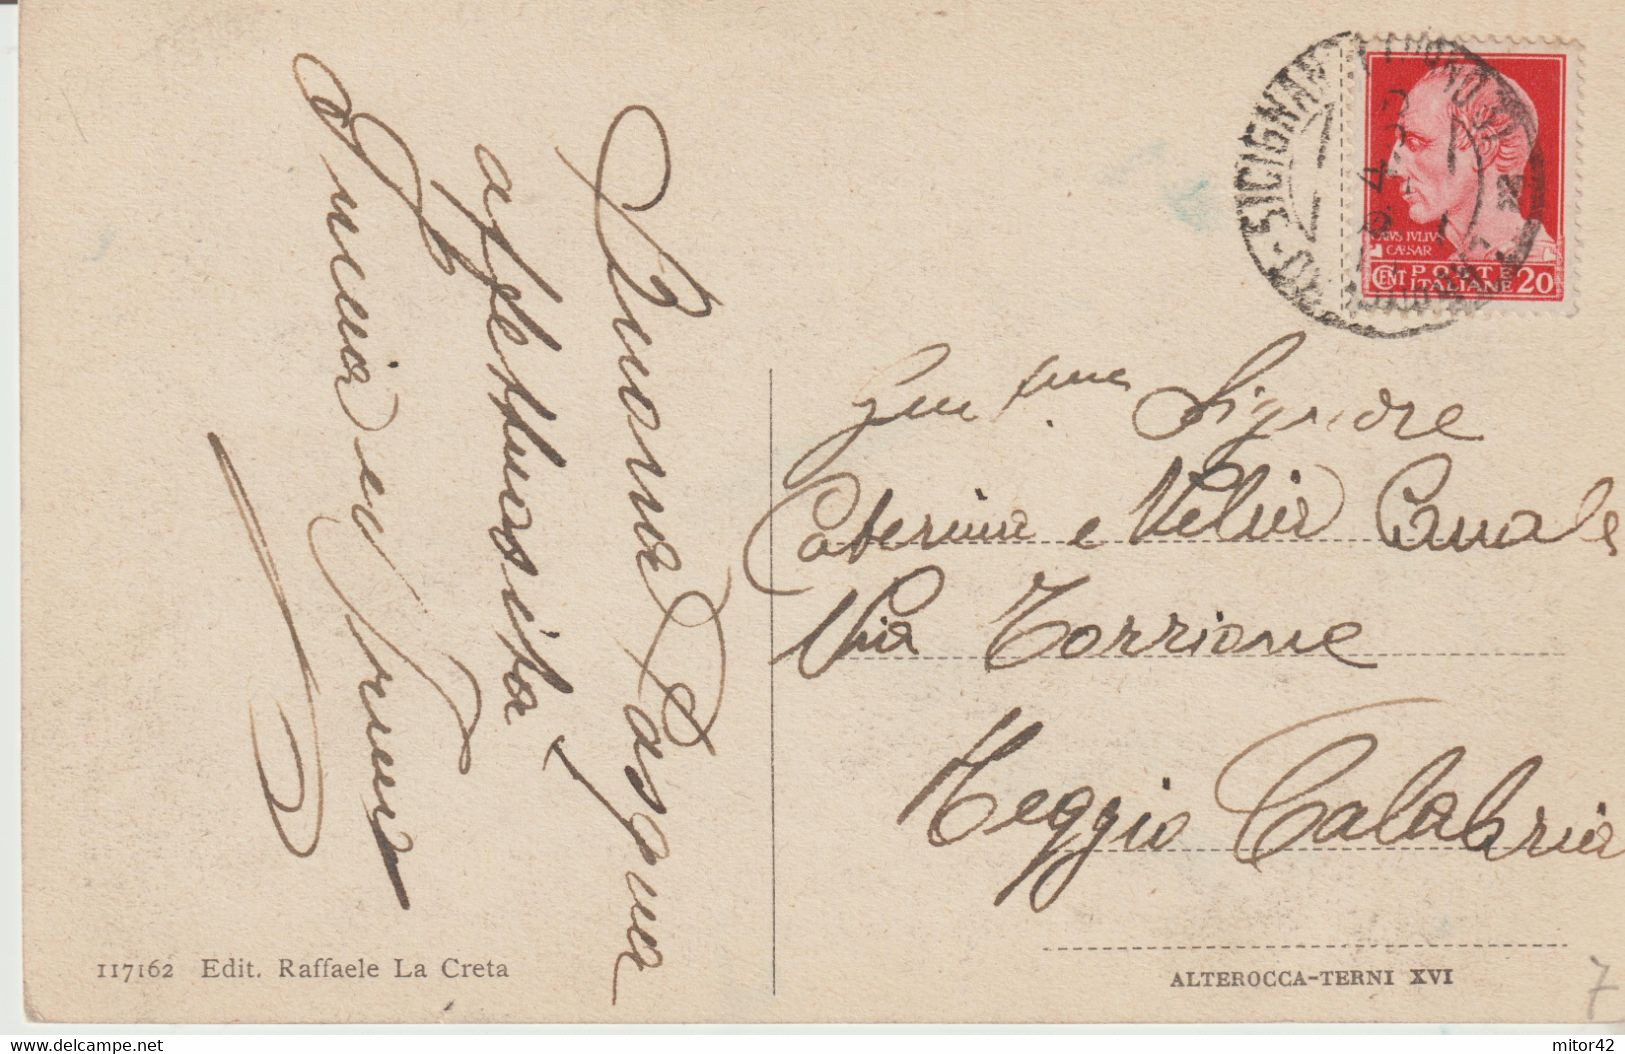 Buona Pasqua
affettuosità
ed
Gen.me Signore
Caterina e Velia Canale
Via Torrione
Reggio Calabria
SICIGNANO
CAIVS IVLIVS
CAESAR
CENT POSTE
ITALIANE 20
117162 Edit. Raffaele La Creta
ALTEROCCA-TERNI XVI
7
www.delcampe.net
mitor42